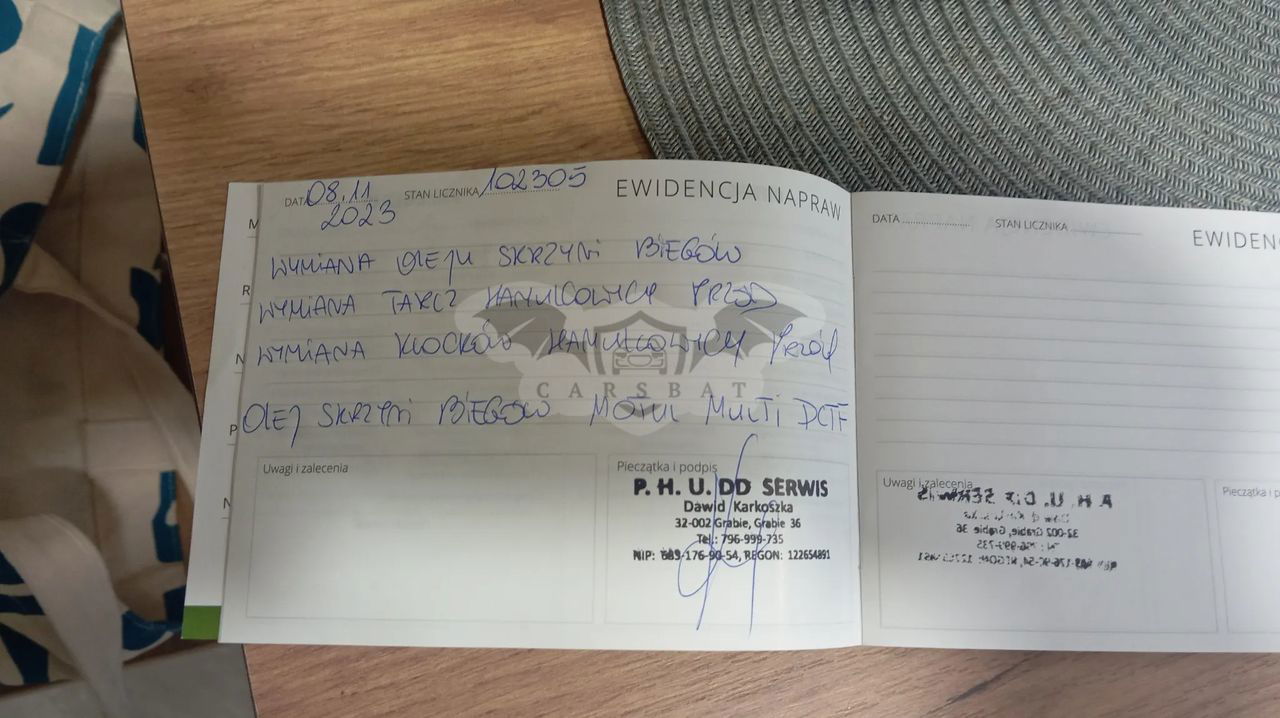 DATA 08.11 STAN LICZNIKA 102305 EWIDENCJA NAPRAW
2023
WYMIANA OLEJU SKRZYNI BIEGÓW
WYMIANA TARCZ HAMULCOWYCH PRZÓD
WYMIANA KLOCKÓW HAMULCOWYCH PRZÓD
CARSBAT
OLEJ SKRZYNI BIEGÓW MOTUL MULTI DCTF
Uwagi i zalecenia
Pieczątka i podpis
P. H. U. DD SERWIS
Dawid Karkoszka
32-002 Grabie, Grabie 36
Tel.: 796-999-735
NIP: 683-176-90-54, REGON: 122654891
M
R
N
P
N
DATA STAN LICZNIKA
EWIDENC
Uwagi i zalecenia
Pieczątka i p